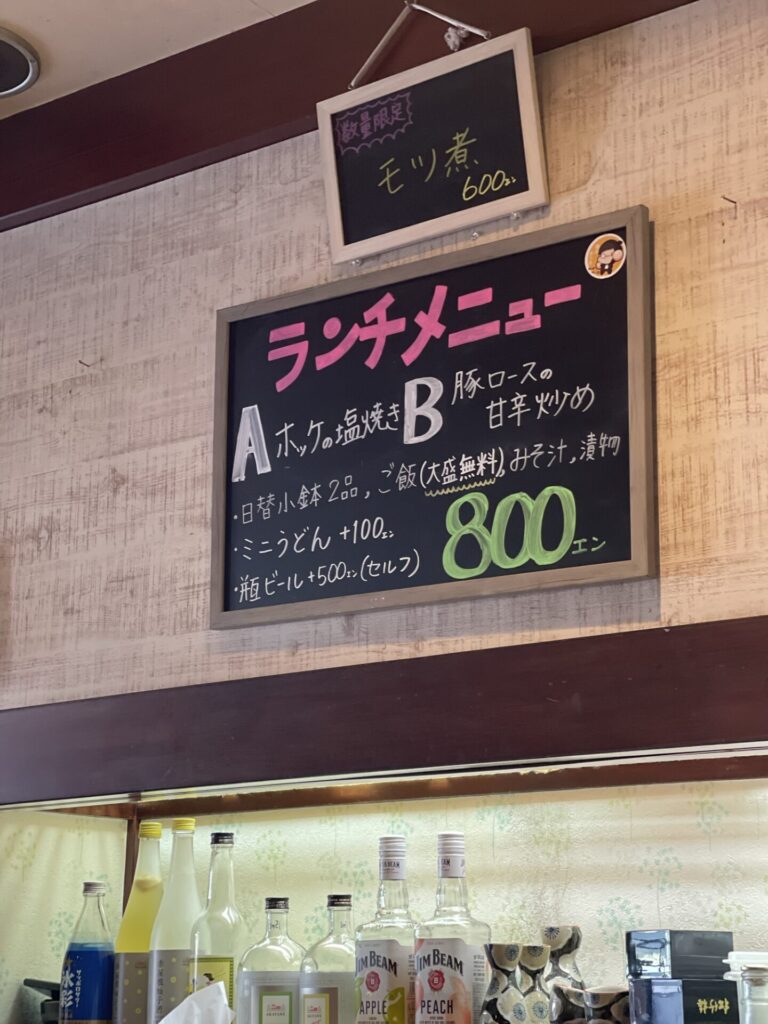 数量限定
モツ煮
600エン
ランチメニュー
A ホッケの塩焼き B 豚ロースの甘辛炒め
・日替小鉢2品,ご飯(大盛無料),みそ汁,漬物
・ミニうどん+100エン
800エン
・瓶ビール+500エン(セルフ)
サッポロソフト
JIM BEAM
APPLE
JIM BEAM
PEACH